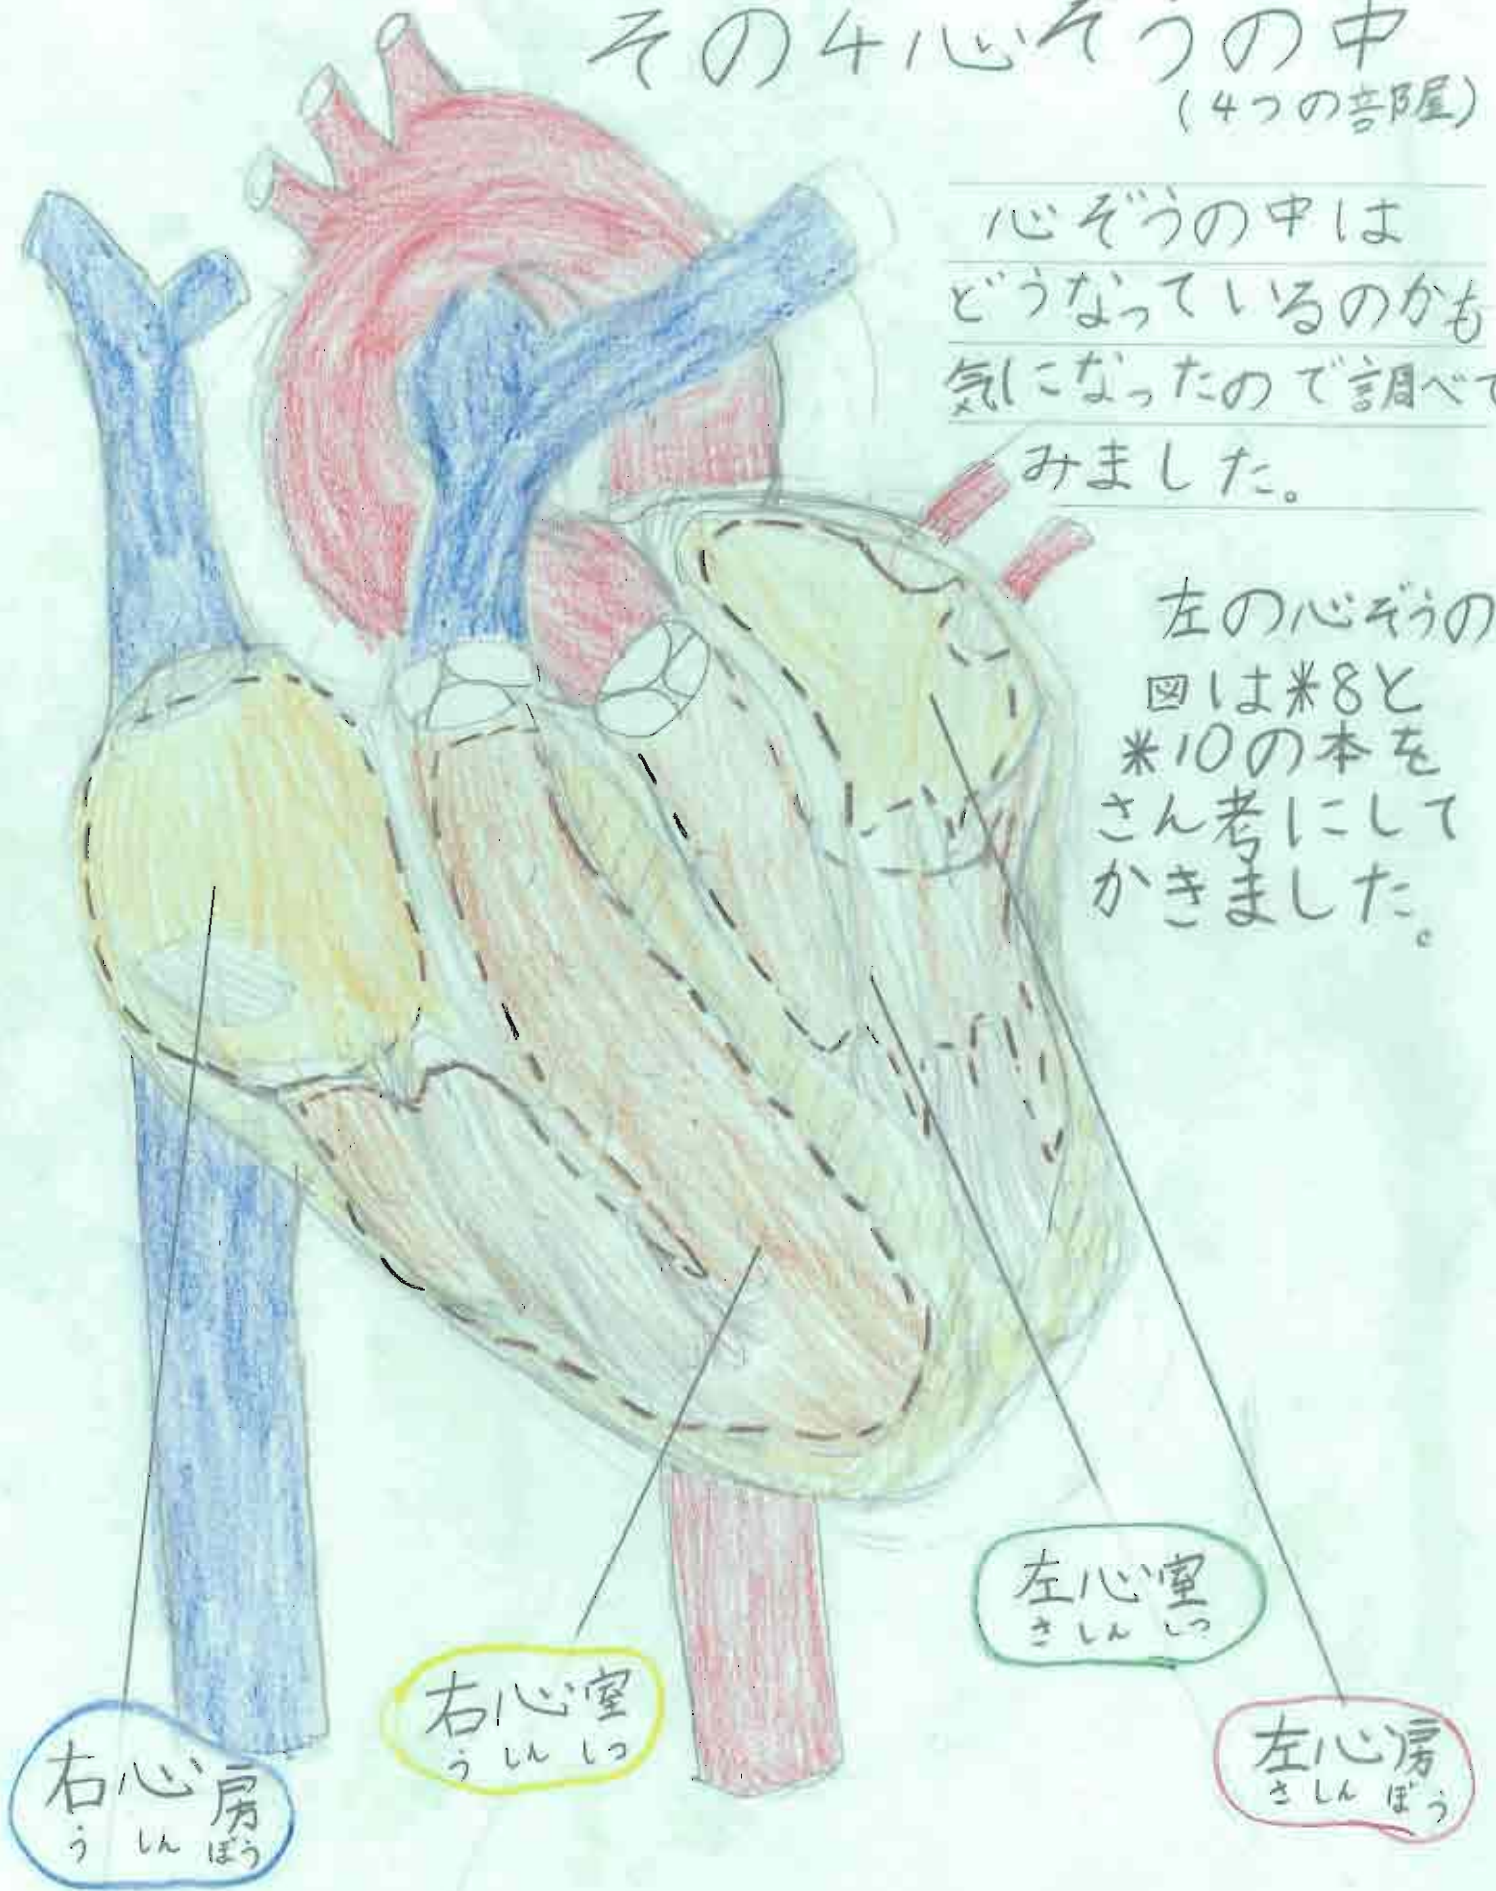 その4心ぞうの中
(4つの部屋)
心ぞうの中は
どうなっているのかも
気になったので調べて
みました。
左の心ぞうの
図は※8と
※10の本を
さん考にして
かきました。
左心室
さしんしつ
右心室
うしんしつ
左心房
さしんぼう
右心房
うしんぼう